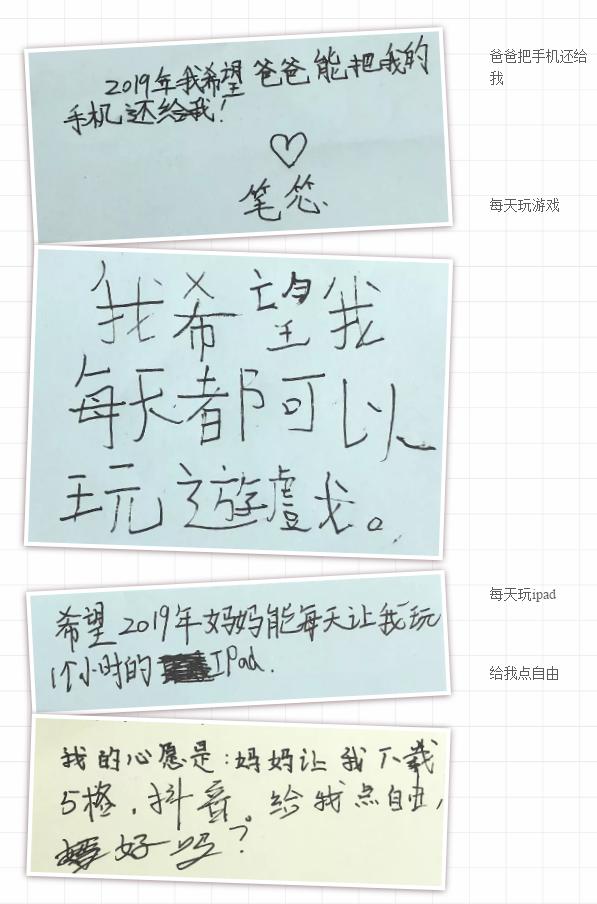 2019年我希望爸爸能把我的
手机还给我！
爸爸把手机还给
我
每天玩游戏
我希望我
每天都可以
玩遊戲。
希望2019年妈妈能每天让我玩
1个小时的IPad.
每天玩ipad
给我点自由
我的心愿是:妈妈让我下载
5格,抖音。给我点自由,
好吗?